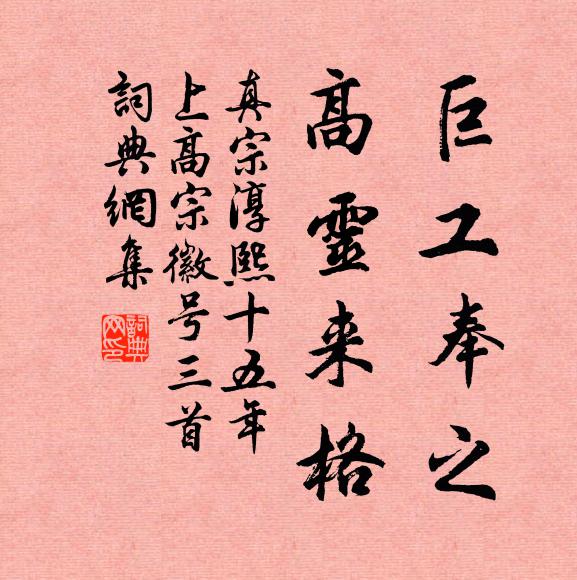 巨工奉之
高靈来格
真宗淳熙十五年
上高宗徽号三首
詞典網集
詞典
网印